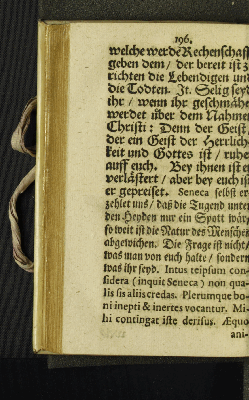 196.
welche werdē Rechenschafft
geben dem / der bereit ist z
richten die Lebendigen und
die Todten. It. Selig seyd
ihr / wenn ihr geschmähe
werdet über dem Nahmen
Christi: Denn der Geist
der ein Geist der Herrlich-
keit und Gottes ist / ruhe
auff euch. Bey ihnen ist er
verlästert / aber bey euch ist
er gepreiset. Seneca selbst er-
zehlet uns / daß die Tugend unter
den Heyden nur ein Spott wäre
so weit ist die Natur des Menschen
abgewichen. Die Frage ist nicht /
was man von euch halte / sondern
was ihr seyd. Intus teipsum con-
sidera (inquit Seneca) non qua-
lis sis aliis credas. Plerumque bo-
ni inepti & inertes vocantur. Mi-
hi contingat iste derisus. Æquo
ani-